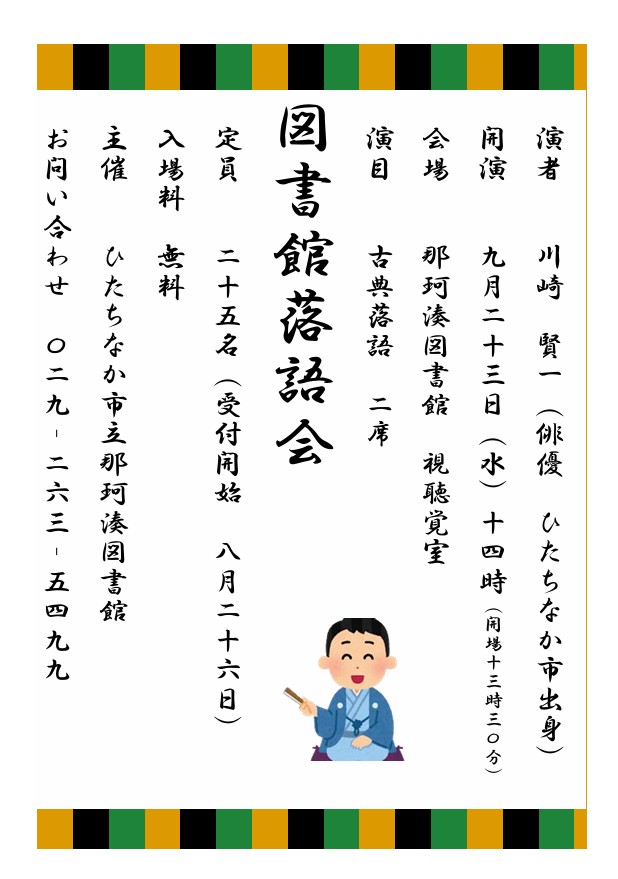 演者　川崎　賢一（俳優　ひたちなか市出身）
開演　九月二十三日（水）十四時（開場十三時三〇分）
会場　那珂湊図書館　視聴覚室
演目　古典落語　二席
図書館落語会
定員　二十五名（受付開始　八月二十六日）
入場料　無料
主催　ひたちなか市立那珂湊図書館
お問い合わせ　〇二九-二六三-五四九九